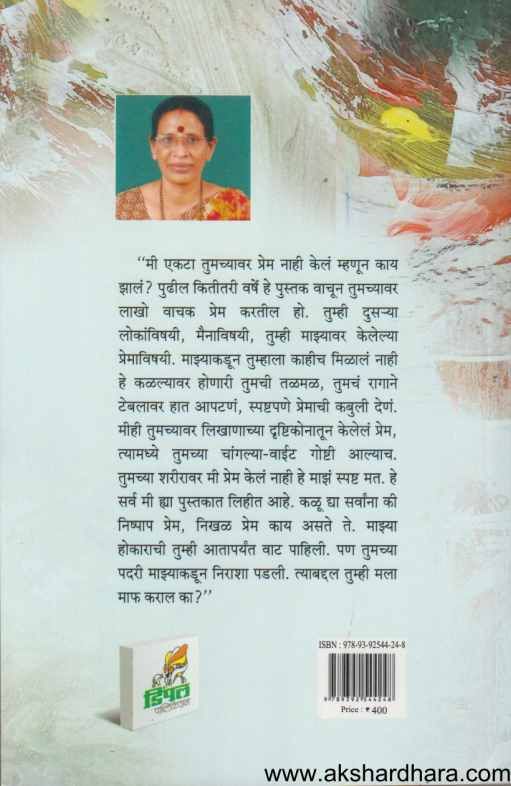 “मी एकटा तुमच्यावर प्रेम नाही केलं म्हणून काय
झालं? पुढील कितीतरी वर्षे हे पुस्तक वाचून तुमच्यावर
लाखो वाचक प्रेम करतील हो. तुम्ही दुसऱ्या
लोकांविषयी, मैनाविषयी, तुम्ही माझ्यावर केलेल्या
प्रेमाविषयी. माझ्याकडून तुम्हाला काहीच मिळालं नाही
हे कळल्यावर होणारी तुमची तळमळ, तुमचं रागाने
टेबलावर हात आपटणं, स्पष्टपणे प्रेमाची कबुली देणं.
मीही तुमच्यावर लिखाणाच्या दृष्टिकोनातून केलेलं प्रेम,
त्यामध्ये तुमच्या चांगल्या-वाईट गोष्टी आल्याच.
तुमच्या शरीरावर मी प्रेम केलं नाही हे माझं स्पष्ट मत. हे
सर्व मी ह्या पुस्तकात लिहीत आहे. कळू द्या सर्वांना की
निष्पाप प्रेम, निखळ प्रेम काय असते ते. माझ्या
होकाराची तुम्ही आतापर्यंत वाट पाहिली. पण तुमच्या
पदरी माझ्याकडून निराशा पडली. त्याबद्दल तुम्ही मला
माफ कराल का?”
ISBN : 978-93-92544-24-8
9 789392 544248
Price : ₹ 400
डिंपल
पब्लिकेशन
www.akshardhara.com